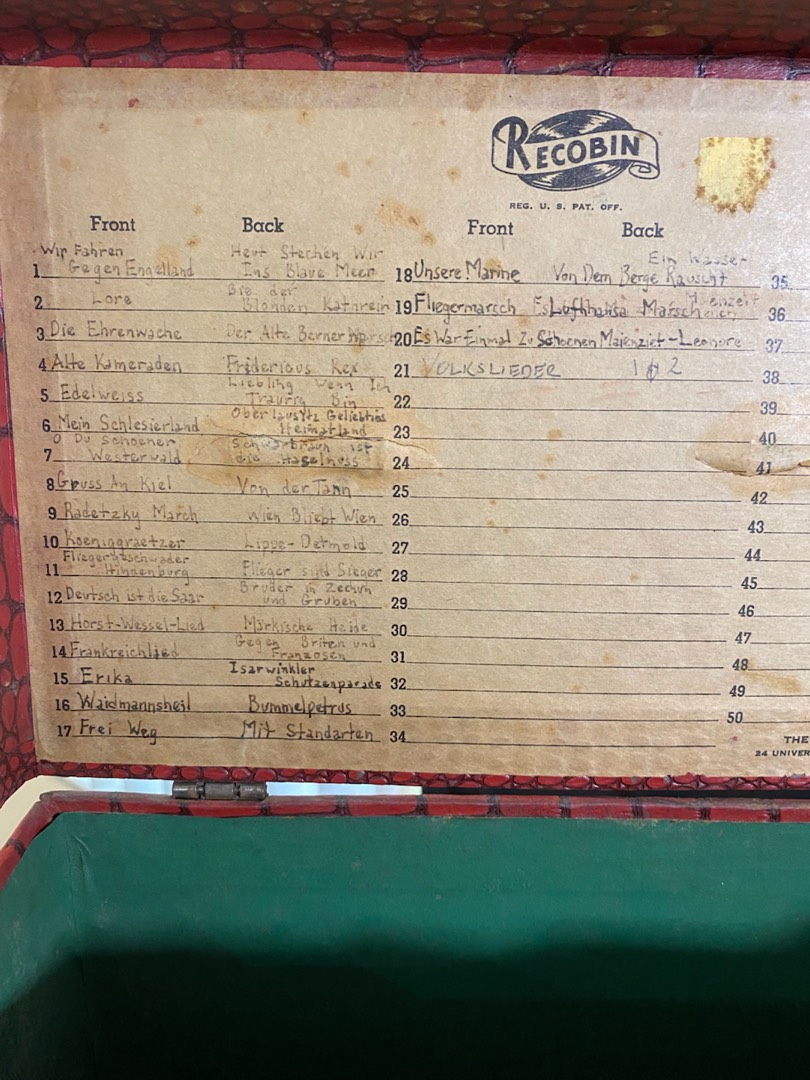 RECOBIN
REG. U. S. PAT. OFF.
Front Back
Wir Fahren Heut Stechen Wir
1 Gegen Engelland Ins Blaue Meer
Bie der
2 Lore Blonden Kathrein
3 Die Ehrenwache Der Alte Berner Marsch
4 Alte Kameraden Fridericus Rex
Liebling Wenn Ich
5 Edelweiss Traurig Bin
Oberlausitz Geliebtes
6 Mein Schlesierland Heimatland
O Du Schoener Schwarbraun ist
7 Westerwald die Haselnuss
8 Gruss An Kiel Von der Tann
9 Radetzky March Wien Bliebt Wien
10 Koeniggraetzer Lippe-Detmold
Fliegergtschwader
11 Hindenburg Flieger sind Sieger
Bruder in Zechun
12 Deutsch ist die Saar und Gruben
13 Horst-Wessel-Lied Märkische Heide
Gegen Briten und
14 Frankreichlied Franzosen
Isarwinkler
15 Erika Schutzenparade
16 Waidmannsheil Bummelpetrus
17 Frei Weg Mit Standarten
Front Back
Ein Wasser
18 Unsere Marine Von Dem Berge Rauscht
19 Fliegermarsch Lufthansa Marsch
20 Es War Einmal Zu Schoenen Maienziet-Leonore
21 VOLKSLIEDER 1 & 2
22
23
24
25
26
27
28
29
30
31
32
33
34
35
36
37
38
39
40
41
42
43
44
45
46
47
48
49
50
THE
24 UNIVER